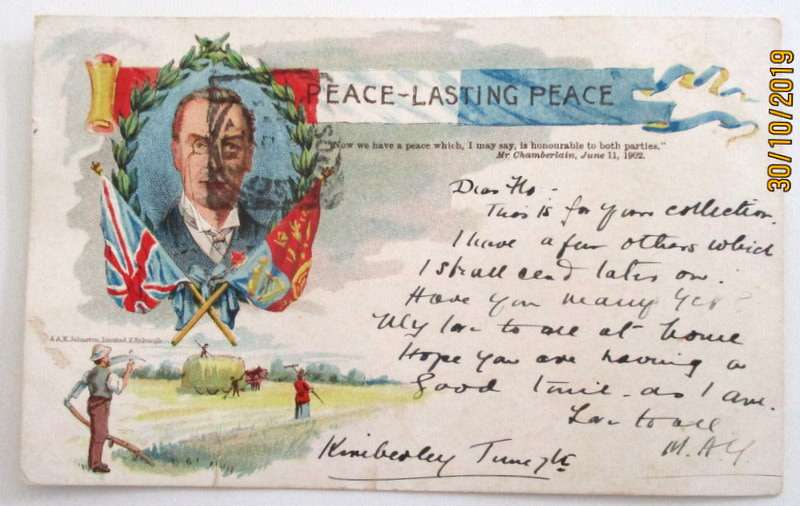 PEACE-LASTING PEACE
"Now we have a peace which, I may say, is honourable to both parties."
Mr Chamberlain, June 11, 1902.
Dear Flo -
This is for your collection.
I have a few others which
I shall send later on.
Have you many yet?
My love to all at home
Hope you are having a
good time - as I am.
Love to all
M.
Kimberley
& A.K. Johnston, Limited, Edinburgh
30/10/2019